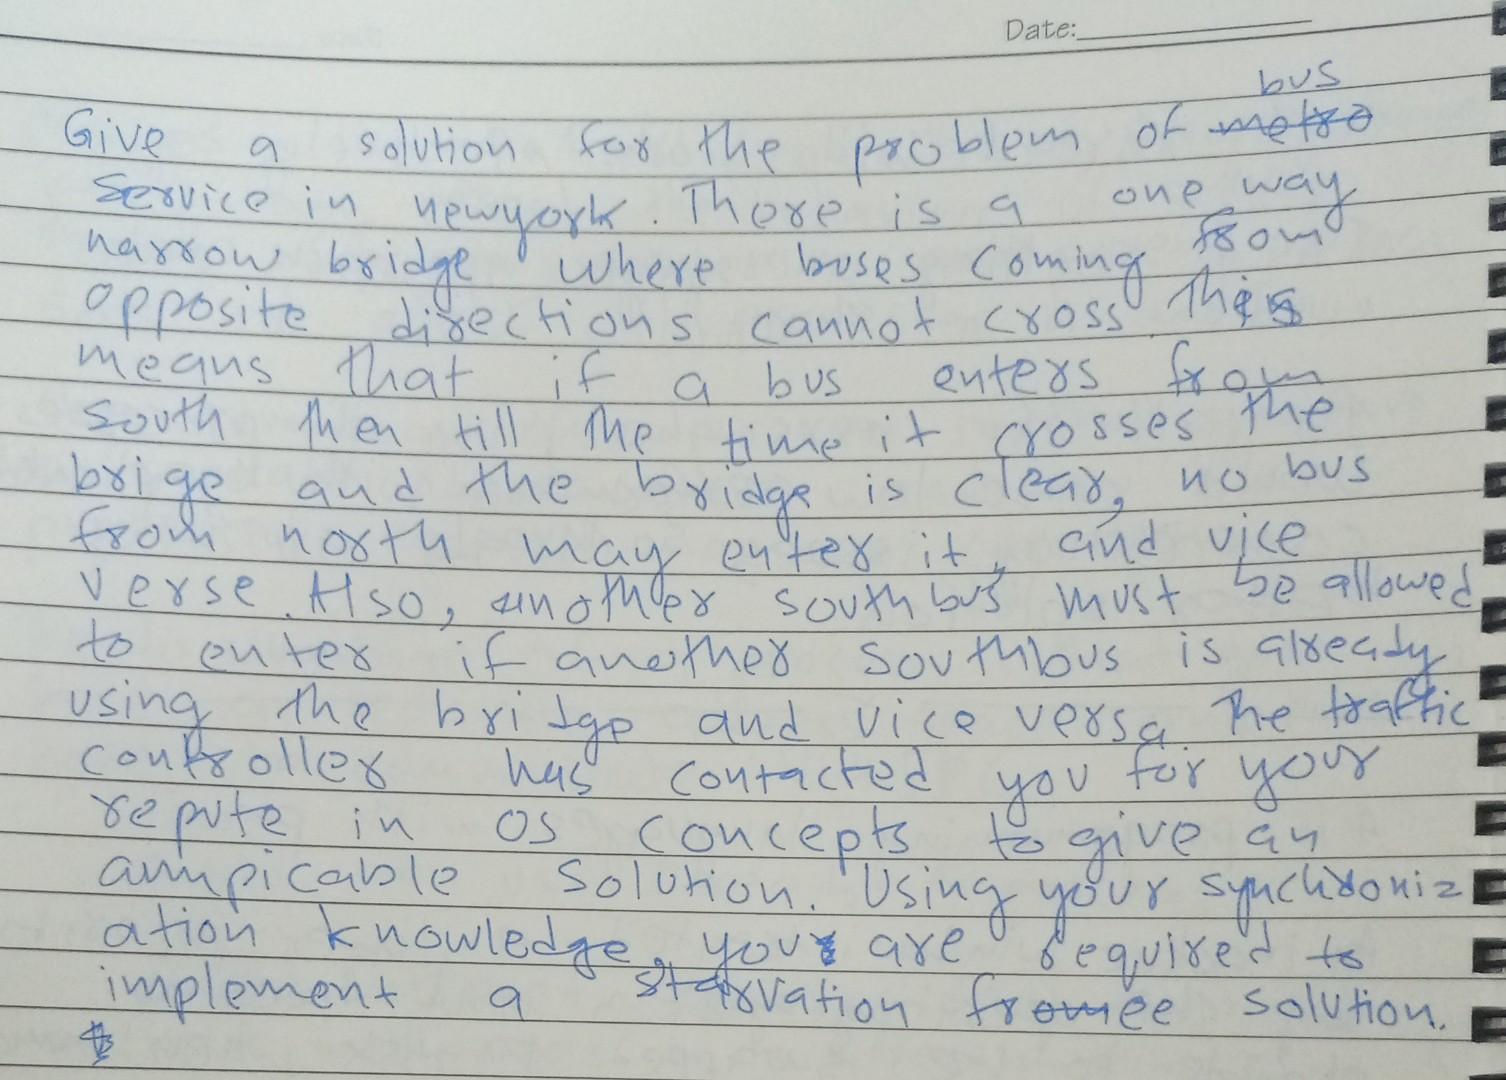 Date:
bus
Give a solution for the problem of metro
service in newyork. There is a one way
narrow bridge where buses coming from
opposite directions cannot cross. This
means that if a bus enters from
south then till the time it crosses the
brige and the bridge is clear, no bus
from north may enter it, and vice
verse. Also, another southbus must be allowed
to enter if another southbus is already
using the bridge and vice versa. The traffic
controller has contacted you for your
repute in OS concepts to give an
ampicable solution. Using your synchroniz
ation knowledge, you are required to
implement a starvation free solution.